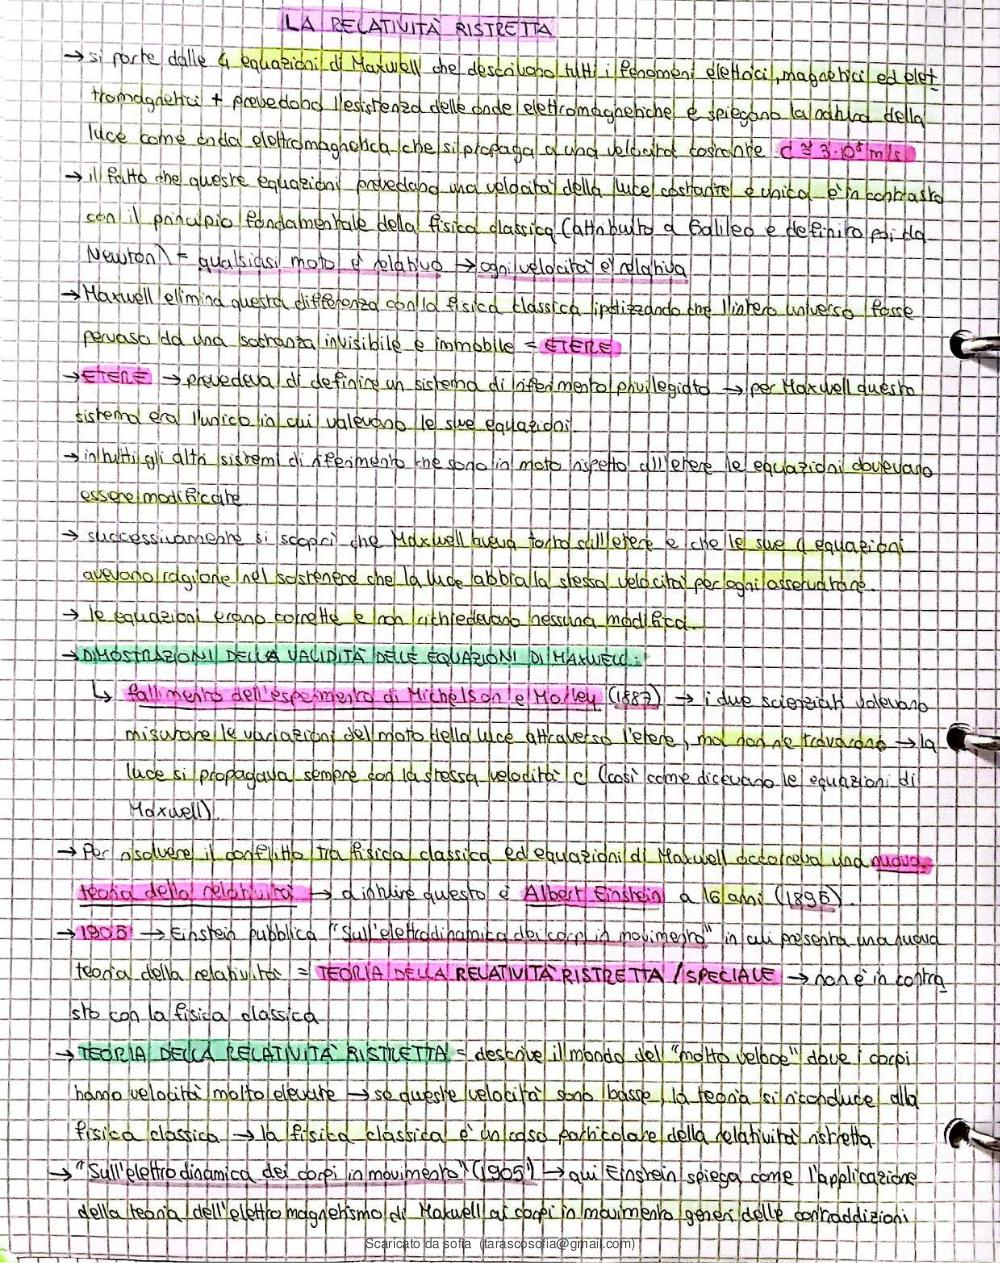 LA RELATIVITÀ RISTRETTA
→ si parte dalle 4 equazioni di Maxwell che descrivono tutti i fenomeni elettrici, magnetici ed elet
tromagnetici + prevedono l'esistenza delle onde elettromagnetiche e spiegano la natura della
luce come onda elettromagnetica che si propaga a una velocità costante c ≅ 3·10⁸ m/s
→ il fatto che queste equazioni prevedano una velocità della luce costante e unica è in contrasto
con il principio fondamentale della fisica classica (attribuito a Galileo e definito poi da
Newton) = qualsiasi moto è relativo → ogni velocità è relativa
→ Maxwell elimina questa differenza con la fisica classica ipotizzando che l'intero universo fosse
pervaso da una sostanza invisibile e immobile = ETERE
→ ETERE → prevedeva di definire un sistema di riferimento privilegiato → per Maxwell questo
sistema era l'unico in cui valevano le sue equazioni.
→ in tutti gli altri sistemi di riferimento che sono in moto rispetto all'etere le equazioni dovevano
essere modificate
→ successivamente si scoprì che Maxwell aveva torto sull'etere e che le sue 4 equazioni
avevano ragione nel sostenere che la luce abbia la stessa velocità per ogni osservatore.
→ le equazioni erano corrette e non richiedevano nessuna modifica.
→ DIMOSTRAZIONI DELLA VALIDITÀ DELLE EQUAZIONI DI MAXWELL:
↳ fallimento dell'esperimento di Michelson e Morley (1887) → i due scienziati volevano
misurare le variazioni del moto della luce attraverso l'etere, ma non ne trovarono → la
luce si propagava sempre con la stessa velocità c (così come dicevano le equazioni di
Maxwell).
→ Per risolvere il conflitto tra fisica classica ed equazioni di Maxwell occorreva una nuova
teoria della relatività → a intuire questo è Albert Einstein a 16 anni (1895).
→ 1905 → Einstein pubblica "Sull'elettrodinamica dei corpi in movimento" in cui presenta una nuova
teoria della relatività = TEORIA DELLA RELATIVITÀ RISTRETTA / SPECIALE → non è in contra
sto con la fisica classica
→ TEORIA DELLA RELATIVITÀ RISTRETTA = descrive il mondo del "molto veloce" dove i corpi
hanno velocità molto elevate → se queste velocità sono basse, la teoria si riconduce alla
fisica classica → la fisica classica è un caso particolare della relatività ristretta
→ "Sull'elettrodinamica dei corpi in movimento" (1905) → qui Einstein spiega come l'applicazione
della teoria dell'elettromagnetismo di Maxwell ai corpi in movimento generi delle contraddizioni
Scaricato da sofia (tarascosofia@gmail.com)